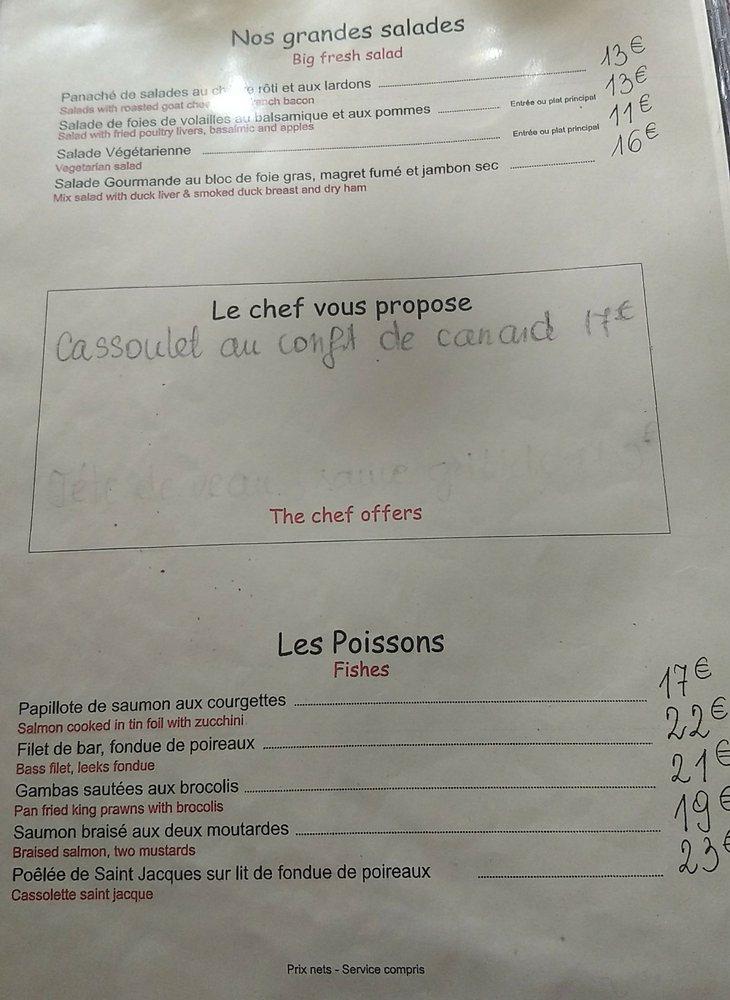 Nos grandes salades
Big fresh salad
Panaché de salades au rôti et aux lardons 13€
Salads with roasted goat bacon
Salade de foies de volailles au balsamique et aux pommes Entrée ou plat principal 13€
Salad with fried poultry livers, basalmic and apples
Salade Végétarienne Entrée ou plat principal 11€
Vegetarian salad
Salade Gourmande au bloc de foie gras, magret fumé et jambon sec 16€
Mix salad with duck liver & smoked duck breast and dry ham
Le chef vous propose
Cassoulet au confit de canard 17€
Tête de veau sauce
The chef offers
Les Poissons
Fishes
Papillote de saumon aux courgettes 17€
Salmon cooked in tin foil with zucchini
Filet de bar, fondue de poireaux 22€
Bass filet, leeks fondue
Gambas sautées aux brocolis 21€
Pan fried king prawns with brocolis
Saumon braisé aux deux moutardes 19€
Braised salmon, two mustards
Poêlée de Saint Jacques sur lit de fondue de poireaux 23€
Cassolette saint jacque
Prix nets - Service compris